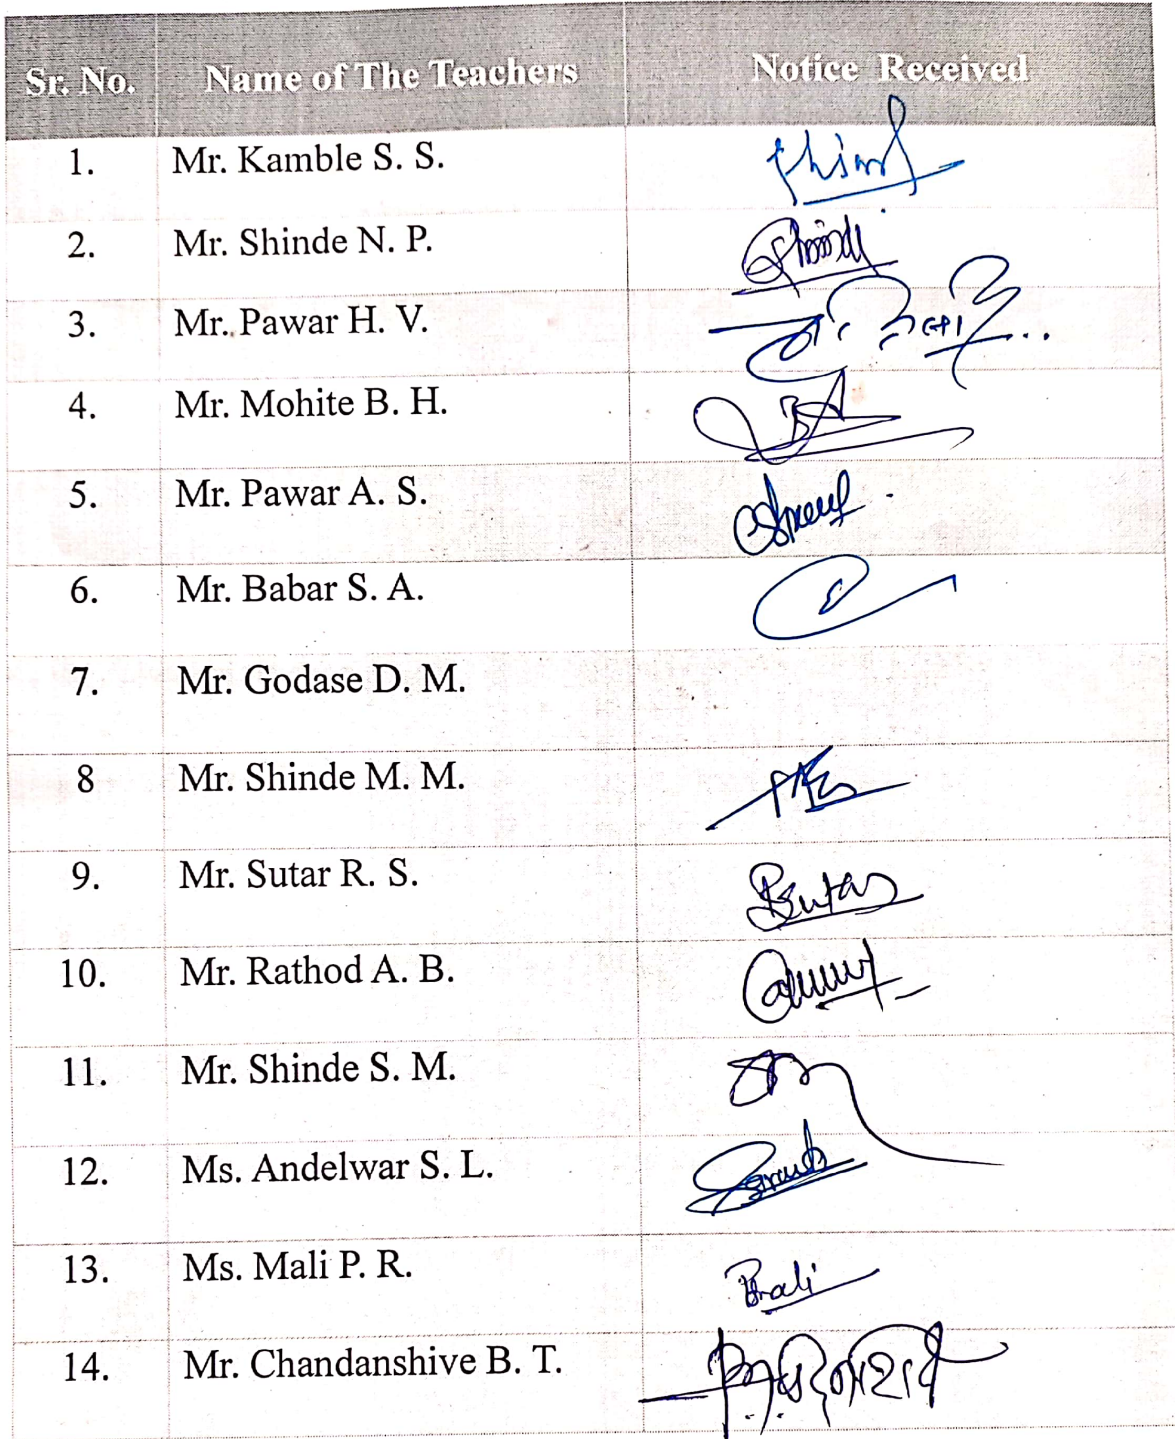 Sr. No. Name of The Teachers Notice Received
1. Mr. Kamble S. S.
2. Mr. Shinde N. P.
3. Mr. Pawar H. V.
4. Mr. Mohite B. H.
5. Mr. Pawar A. S.
6. Mr. Babar S. A.
7. Mr. Godase D. M.
8 Mr. Shinde M. M.
9. Mr. Sutar R. S.
10. Mr. Rathod A. B.
11. Mr. Shinde S. M.
12. Ms. Andelwar S. L.
13. Ms. Mali P. R.
14. Mr. Chandanshive B. T.